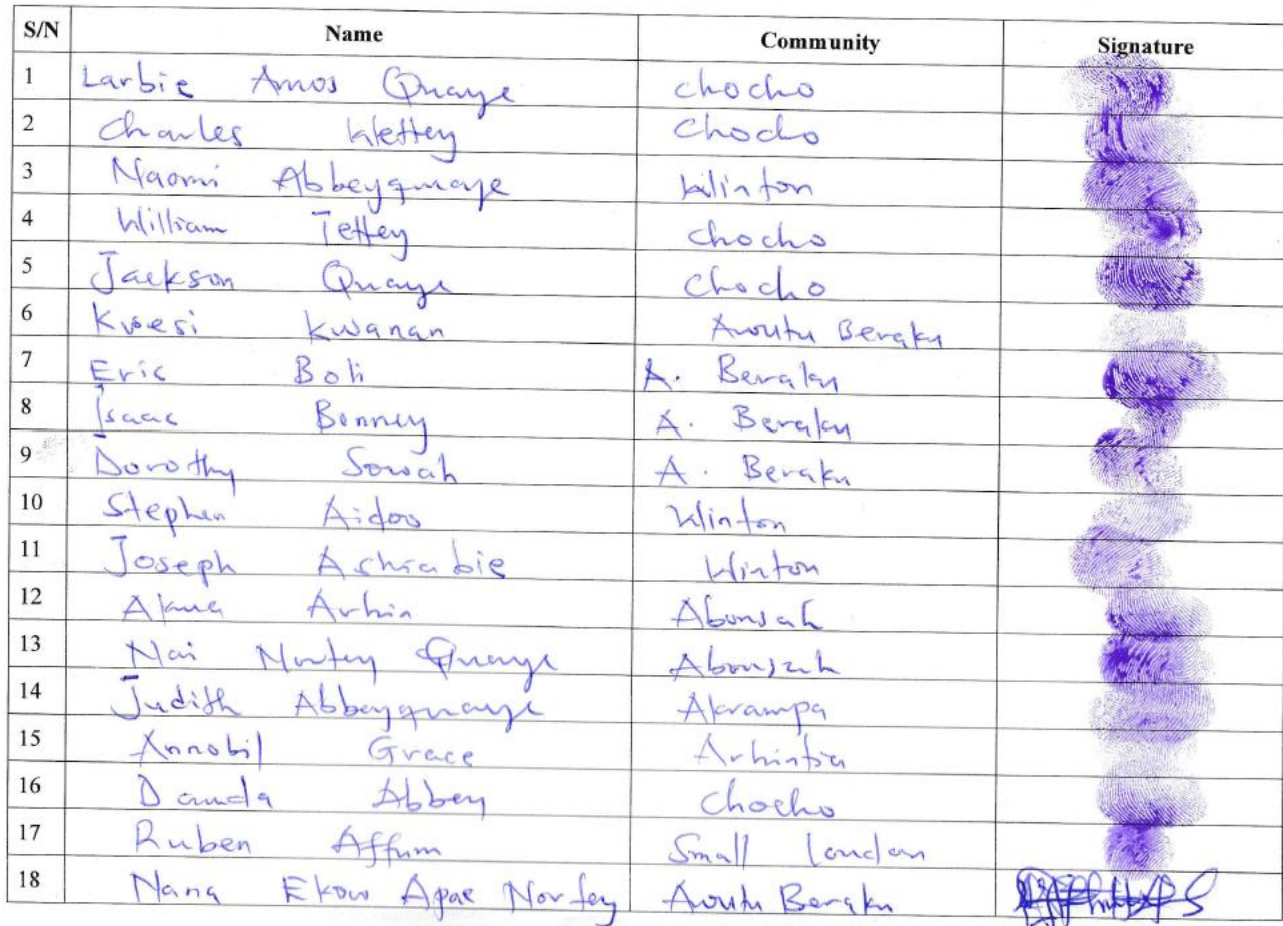 S/N Name Community Signature
1 Larbie Amos Quaye Chocho
2 Charles Wettey Chocho
3 Naomi Abbeyquaye Winton
4 William Tettey Chocho
5 Jackson Quaye Chocho
6 Kwesi Kwanan Awutu Beraku
7 Eric Boli A. Beraku
8 Isaac Bonney A. Beraku
9 Dorothy Sowah A. Beraku
10 Stephen Aidoo Winton
11 Joseph Ashiabie Winton
12 Akua Arhin Abonsah
13 Nai Nortey Quaye Abonsah
14 Judith Abbeyquaye Akrampa
15 Annobil Grace Arhintia
16 Dauda Abbey Chocho
17 Ruben Affum Small London
18 Nana Ekow Apae Nortey Awutu Beraku